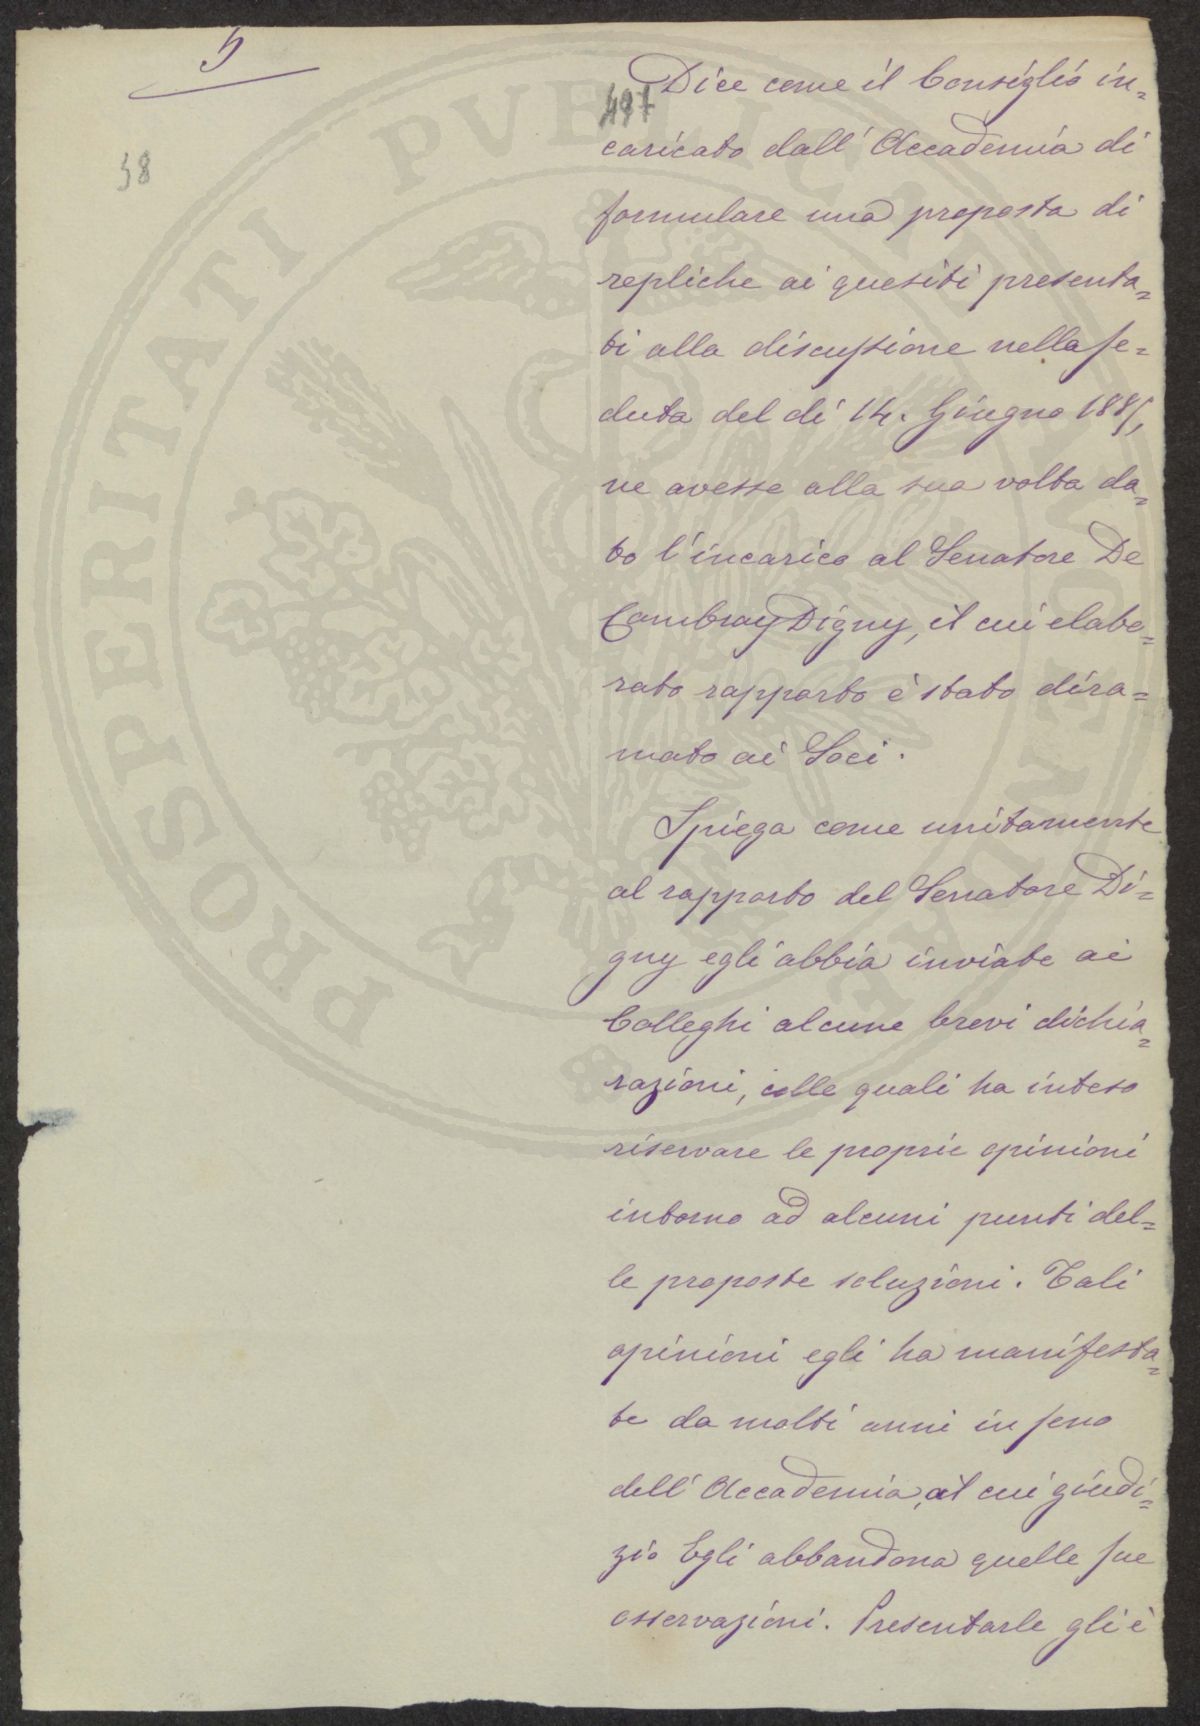 5
497
58
Dice come il Consiglio in=
caricato dall' Accademia di
formulare una proposta di
repliche ai quesiti presenta=
ti alla discussione nella se=
duta del dì 14. Giugno 1885,
ne avesse alla sua volta da=
to l'incarico al Senatore De
Cambray Digny, il cui elabo=
rato rapporto è stato dira=
mato ai Soci.
Spiega come unitamente
al rapporto del Senatore Di=
gny egli abbia inviate ai
Colleghi alcune brevi dichia=
razioni, colle quali ha inteso
riservare le proprie opinioni
intorno ad alcuni punti del=
le proposte soluzioni. Tali
opinioni egli ha manifesta=
te da molti anni in seno
dell' Accademia, al cui giudi=
zio Egli abbandona quelle sue
osservazioni. Presentarle gli è
PROSPERITATI PVBLICAE AVGENDAE